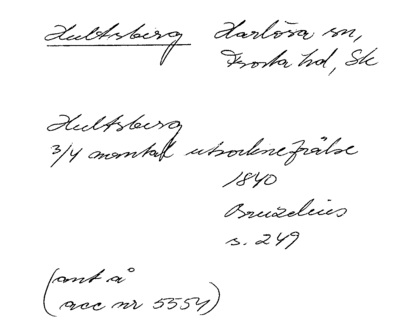 Hultsberg Harlösa sn,
Frosta hd, Sk
Hultsberg
3/4 mantal utsocknefrälse
1840
Bruzelius
s. 249
(ant å
acc nr 5554)